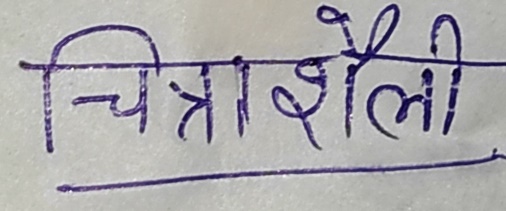 चित्राशैली